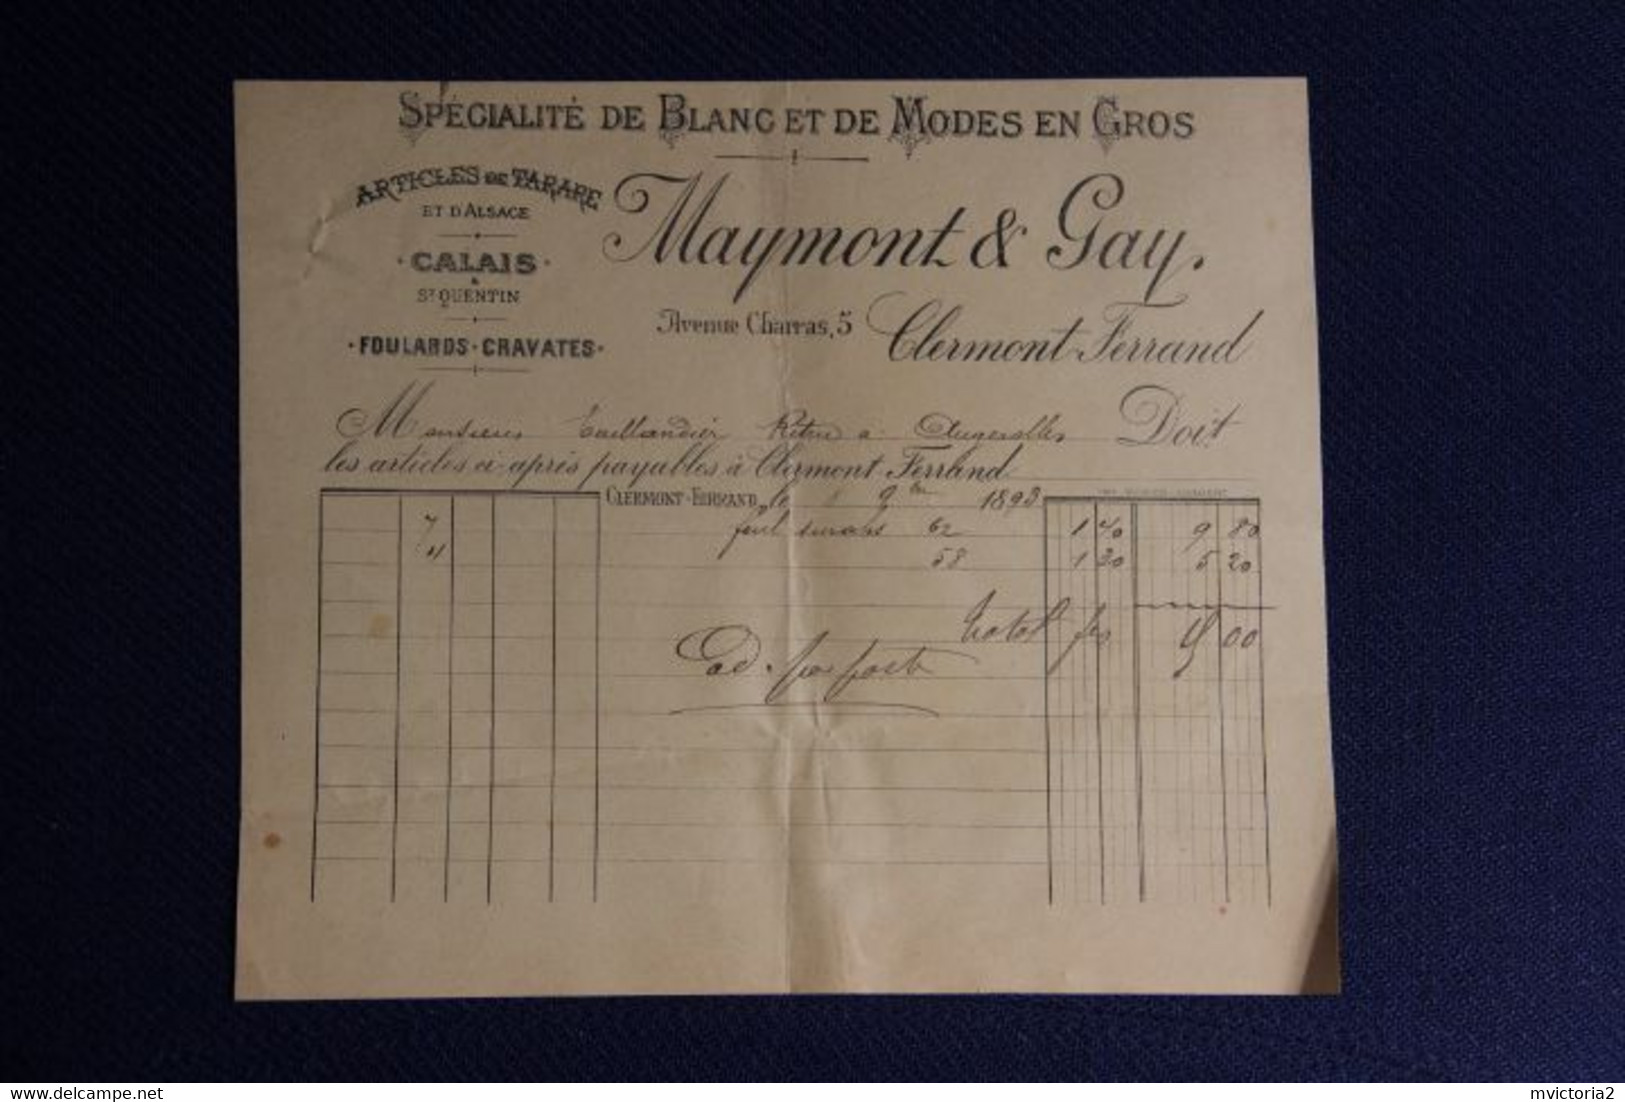 SPÉCIALITÉ DE BLANC ET DE MODES EN GROS
ARTICLES DE TARARE
ET D'ALSACE
CALAIS
&
ST QUENTIN
FOULARDS · CRAVATES
Maymont & Gay,
Avenue Charras, 5
Clermont-Ferrand
Monsieur Taillandier à Augerolles Doit
les articles ci-après payables à Clermont-Ferrand
CLERMONT-FERRAND, le 9bre 1893
7 foul 62 1 40 9 80
4 58 1 30 5 20
total frs 15 00
par poste
www.delcampe.net
mvictoria2